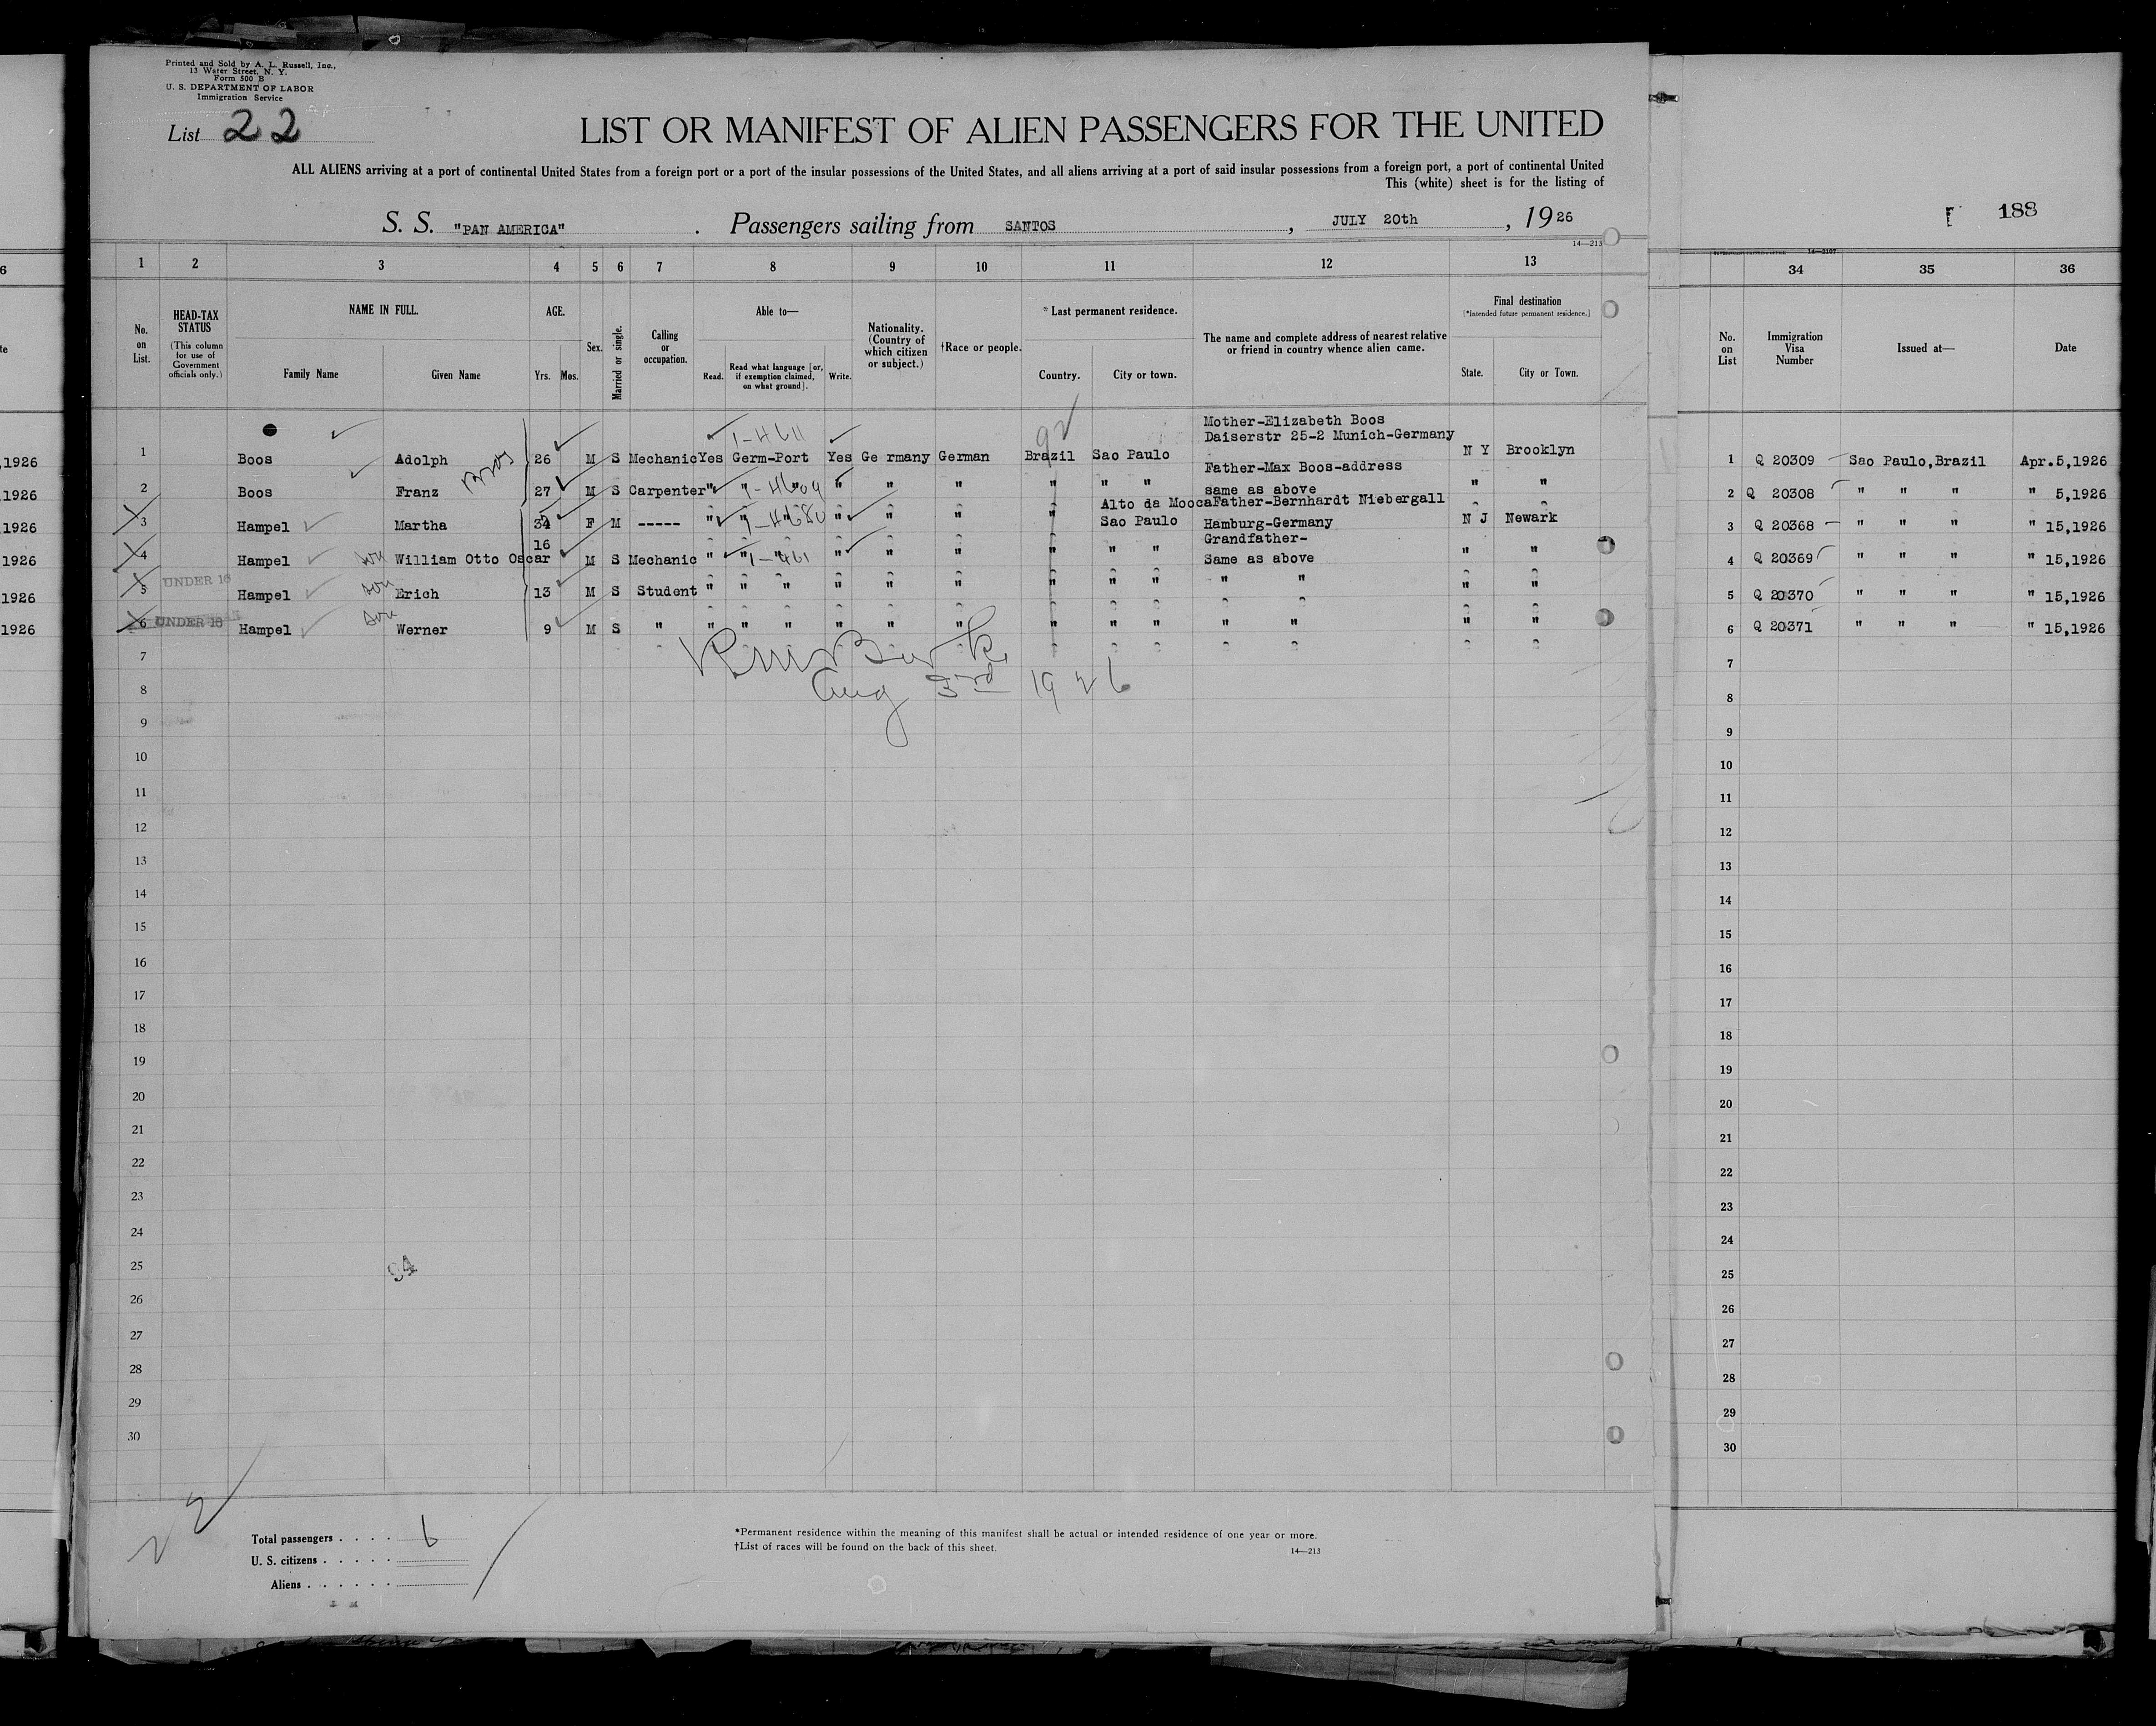 Printed and Sold by A. L. Russell, Inc.,
13 Water Street, N. Y.
Form 500 B
U. S. DEPARTMENT OF LABOR
Immigration Service
List 22
LIST OR MANIFEST OF ALIEN PASSENGERS FOR THE UNITED
ALL ALIENS arriving at a port of continental United States from a foreign port or a port of the insular possessions of the United States, and all aliens arriving at a port of said insular possessions from a foreign port, a port of continental United
This (white) sheet is for the listing of
S. S. "PAN AMERICA" . Passengers sailing from SANTOS , JULY 20th , 1926
188
14—213
1 2 3 4 5 6 7 8 9 10 11 12 13
34 35 36
No. on List.
HEAD-TAX STATUS (This column for use of Government officials only.)
NAME IN FULL.
Family Name Given Name
AGE.
Yrs. Mos.
Sex.
Married or single.
Calling or occupation.
Able to—
Read. Read what language [or, if exemption claimed, on what ground]. Write.
Nationality. (Country of which citizen or subject.)
†Race or people.
*Last permanent residence.
Country. City or town.
The name and complete address of nearest relative or friend in country whence alien came.
Final destination
(*Intended future permanent residence.)
State. City or Town.
No. on List
Immigration Visa Number
Issued at—
Date
Mother-Elizabeth Boos
Daiserstr 25-2 Munich-Germany
1 Boos Adolph 26 M S Mechanic Yes Germ-Port Yes Ge rmany German Brazil Sao Paulo N Y Brooklyn
1 Q 20309 Sao Paulo,Brazil Apr.5,1926
Father-Max Boos-address
2 Boos Franz 27 M S Carpenter " " " " " " " " " same as above " "
2 Q 20308 " " " " 5,1926
Alto da Mooca Father-Bernhardt Niebergall
3 Hampel Martha 34 F M ----- " " " " " " " Sao Paulo Hamburg-Germany N J Newark
3 Q 20368 " " " " 15,1926
16 Grandfather-
4 Hampel son William Otto Oscar M S Mechanic " " " " " " " " " Same as above " "
4 Q 20369 " " " " 15,1926
5 UNDER 16 Hampel son Erich 13 M S Student " " " " " " " " " " " " "
5 Q 20370 " " " " 15,1926
6 UNDER 16 Hampel son Werner 9 M S " " " " " " " " " " " " " "
6 Q 20371 " " " " 15,1926
Aug 3rd 1926
7 7
8 8
9 9
10 10
11 11
12 12
13 13
14 14
15 15
16 16
17 17
18 18
19 19
20 20
21 21
22 22
23 23
24 24
25 25
26 26
27 27
28 28
29 29
30 30
Total passengers . . . . 6
U. S. citizens . . . . .
Aliens . . . . . .
*Permanent residence within the meaning of this manifest shall be actual or intended residence of one year or more.
†List of races will be found on the back of this sheet.
14—213